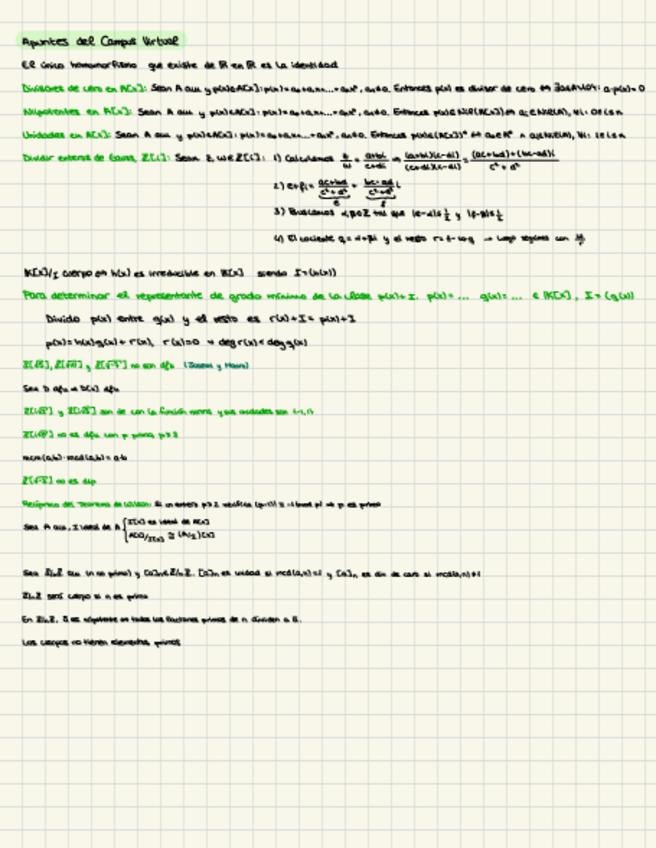 Apuntes del Campus Virtual
El único homomorfismo que existe de ℝ en ℝ es la identidad
Divisores de cero en A[x]: Sean A aun y p(x)∈A[x]: p(x)=a₀+a₁x+...+aₙxⁿ, aₙ≠0. Entonces p(x) es divisor de cero ⇔ ∃a∈A\{0}: a·p(x)=0
Nilpotentes en A[x]: Sean A aun y p(x)∈A[x]: p(x)=a₀+a₁x+...+aₙxⁿ, aₙ≠0. Entonces p(x)∈Nil(A[x]) ⇔ aᵢ∈Nil(A), ∀i: 0≤i≤n
Unidades en A[x]: Sean A aun y p(x)∈A[x]: p(x)=a₀+a₁x+...+aₙxⁿ, aₙ≠0. Entonces p(x)∈(A[x])* ⇔ a₀∈A* ∧ aᵢ∈Nil(A), ∀i: 1≤i≤n
Dividir enteros de Gauss, ℤ[i]: Sean z, w∈ℤ[i]: 1) Calculamos = a+bi/c+di = (a+bi)(c-di)/(c+di)(c-di) = (ac+bd)+(bc-ad)i/c²+d²
2) e+fi = ac+bd/c²+d² + bc-ad/c²+d² i
e f
3) Buscamos α,β∈ℤ tal que |e-α|≤1/2 y |f-β|≤1/2
4) El cociente q=α+βi y el resto → Luego seguimos con
K[x]/I cuerpo ⇔ h(x) es irreducible en K[x] siendo I=(h(x))
Para determinar el representante de grado mínimo de la clase p(x)+I. p(x)=... g(x)=... ∈ K[x], I=(g(x))
Divido p(x) entre g(x) y el resto es r(x)+I=p(x)+I
p(x)=h(x)g(x)+r(x), r(x)=0 ∨ deg r(x)<deg g(x)
no son dfu
Sea D dfu ⇒ D[x] dfu
y son de con la función norma y sus unidades son {-1,1}
no es dfu con p primo, p≥3
mcm(a,b)·mcd(a,b)=a·b
no es dip
Recíproco del Teorema de Wilson: Si un entero p≥2 verifica (p-1)!≡-1(mod p) ⇒ p es primo
Sea A aun, I ideal de A { I[x] es ideal de A[x]
A[x]/I[x] ≅ (A/I)[x]
Sea ℤ/nℤ aun (n no primo) y [a]ₙ∈ℤ/nℤ. [a]ₙ es unidad si mcd(a,n)=1 y [a]ₙ es div de cero si mcd(a,n)≠1
ℤ/nℤ será cuerpo si n es primo
En ℤ/nℤ, ā es nilpotente ⇔ todos los factores primos de n dividen a a.
Los cuerpos no tienen elementos primos